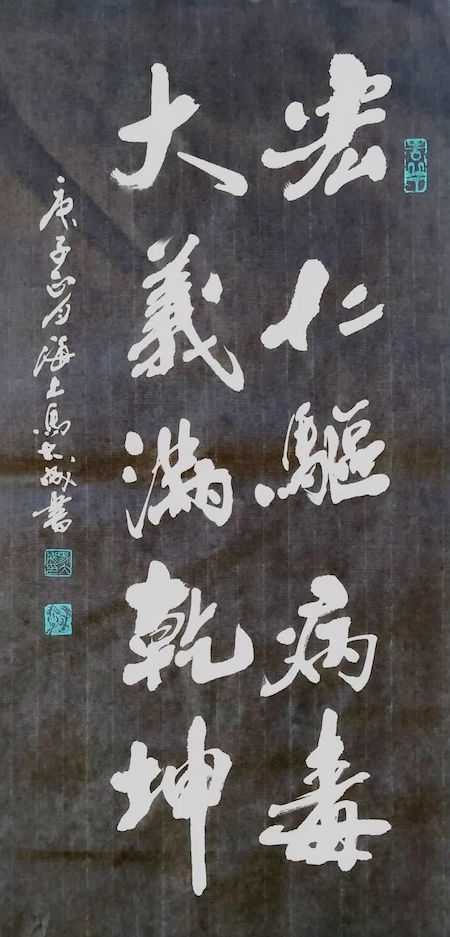 宏仁驅病毒
大義滿乾坤
庚子正月海上馬大成書